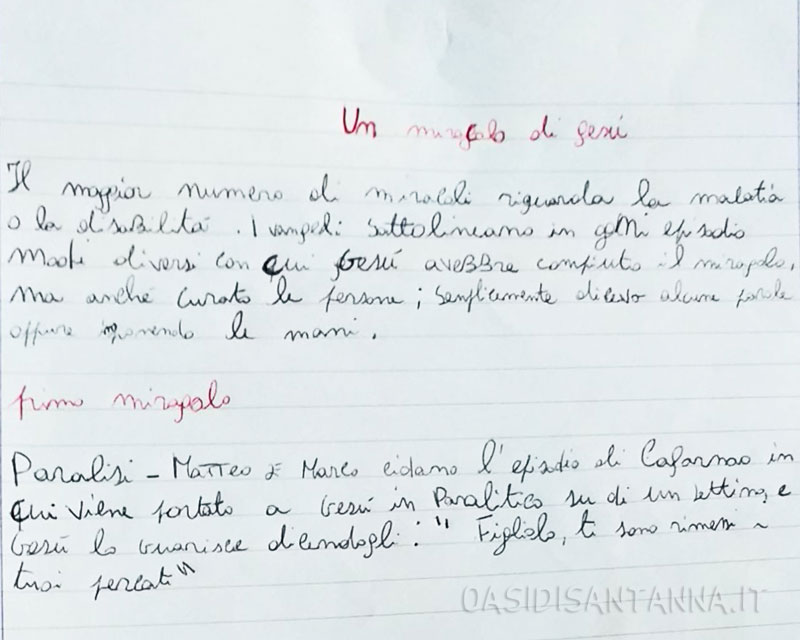 Un miracolo di Gesù
Il maggior numero di miracoli riguarda la malatia
o la disabilità. I vangeli sottolineano in ogni episodio
modi diversi con cui Gesù avebbre compiuto il miracolo,
ma anche curato le persone; semplicemente dicevo alcune parole
oppure imponendo le mani.
primo miracolo
Paralisi - Matteo e Marco cidamo l'episodio di Cafarnao in
cui viene portato a Gesù in Paralitico su di un lettino, e
Gesù lo guarisce dicendogli: "Figliolo, ti sono rimessi i
tuoi peccati"
OASIDISANTANNA.IT